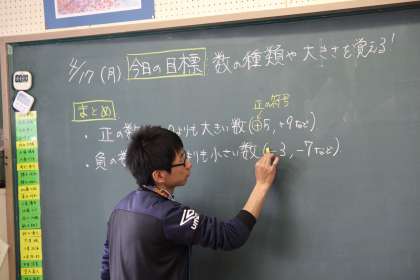 4/17(月) 今日の目標 数の種類や大きさを覚える!
まとめ
正の符号
・正の数 よりも大きい数(+5, +9など)
・負の数 よりも小さい数(-3, -7など)